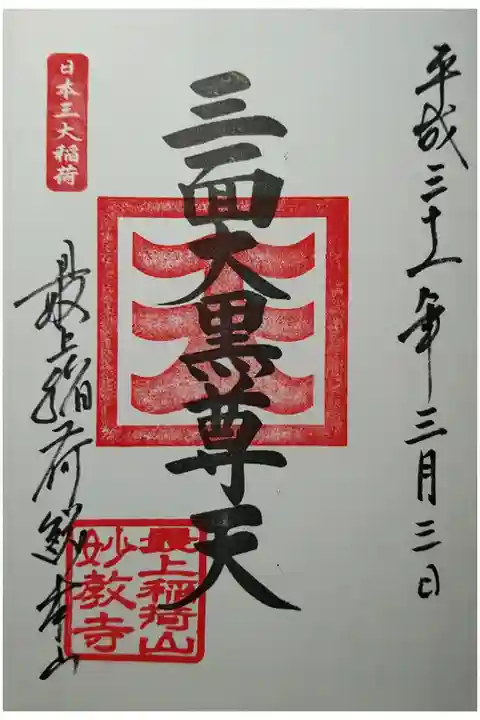 平成三十一年三月三日
三面大黒尊天
日本三大稲荷
最上稲荷総本山
最上稲荷山
妙教寺